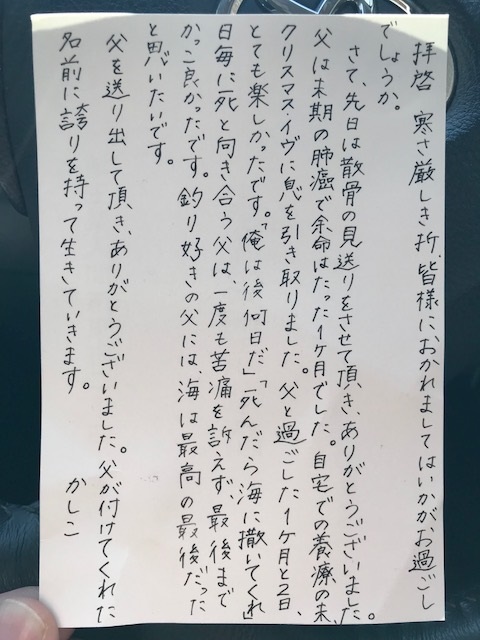 拝啓 寒さ厳しき折、皆様におかれましてはいかがお過ごし
でしょうか。
さて、先日は散骨の見送りをさせて頂き、ありがとうございました。
父は末期の肺癌で余命はたった1ヶ月でした。自宅での養療の末、
クリスマス・イヴに息を引き取りました。父と過ごした1ヶ月と2日、
とても楽しかったです。「俺は後何日だ」「死んだら海に撒いてくれ」
日毎に死と向き合う父は、一度も苦痛を訴えず、最後まで
かっこ良かったです。釣り好きの父には、海は最高の最後だった
と思いたいです。
父を送り出して頂き、ありがとうございました。父が付けてくれた
名前に誇りを持って生きていきます。
かしこ